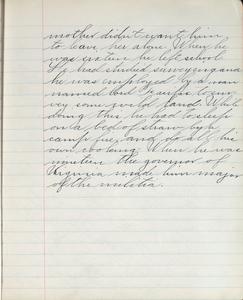 mother didn't want him
to leave her alone. When he
was sixteen he left school
He had studied surveying and
he was employed by a man
named Lord Fairfax to sur-
vey some wild land. While
doing this he had to sleep
on a bed of straw by a
camp fire, and do all his
own cooking. When he was
nineteen the governor of
Virginia made him major
of the militia.